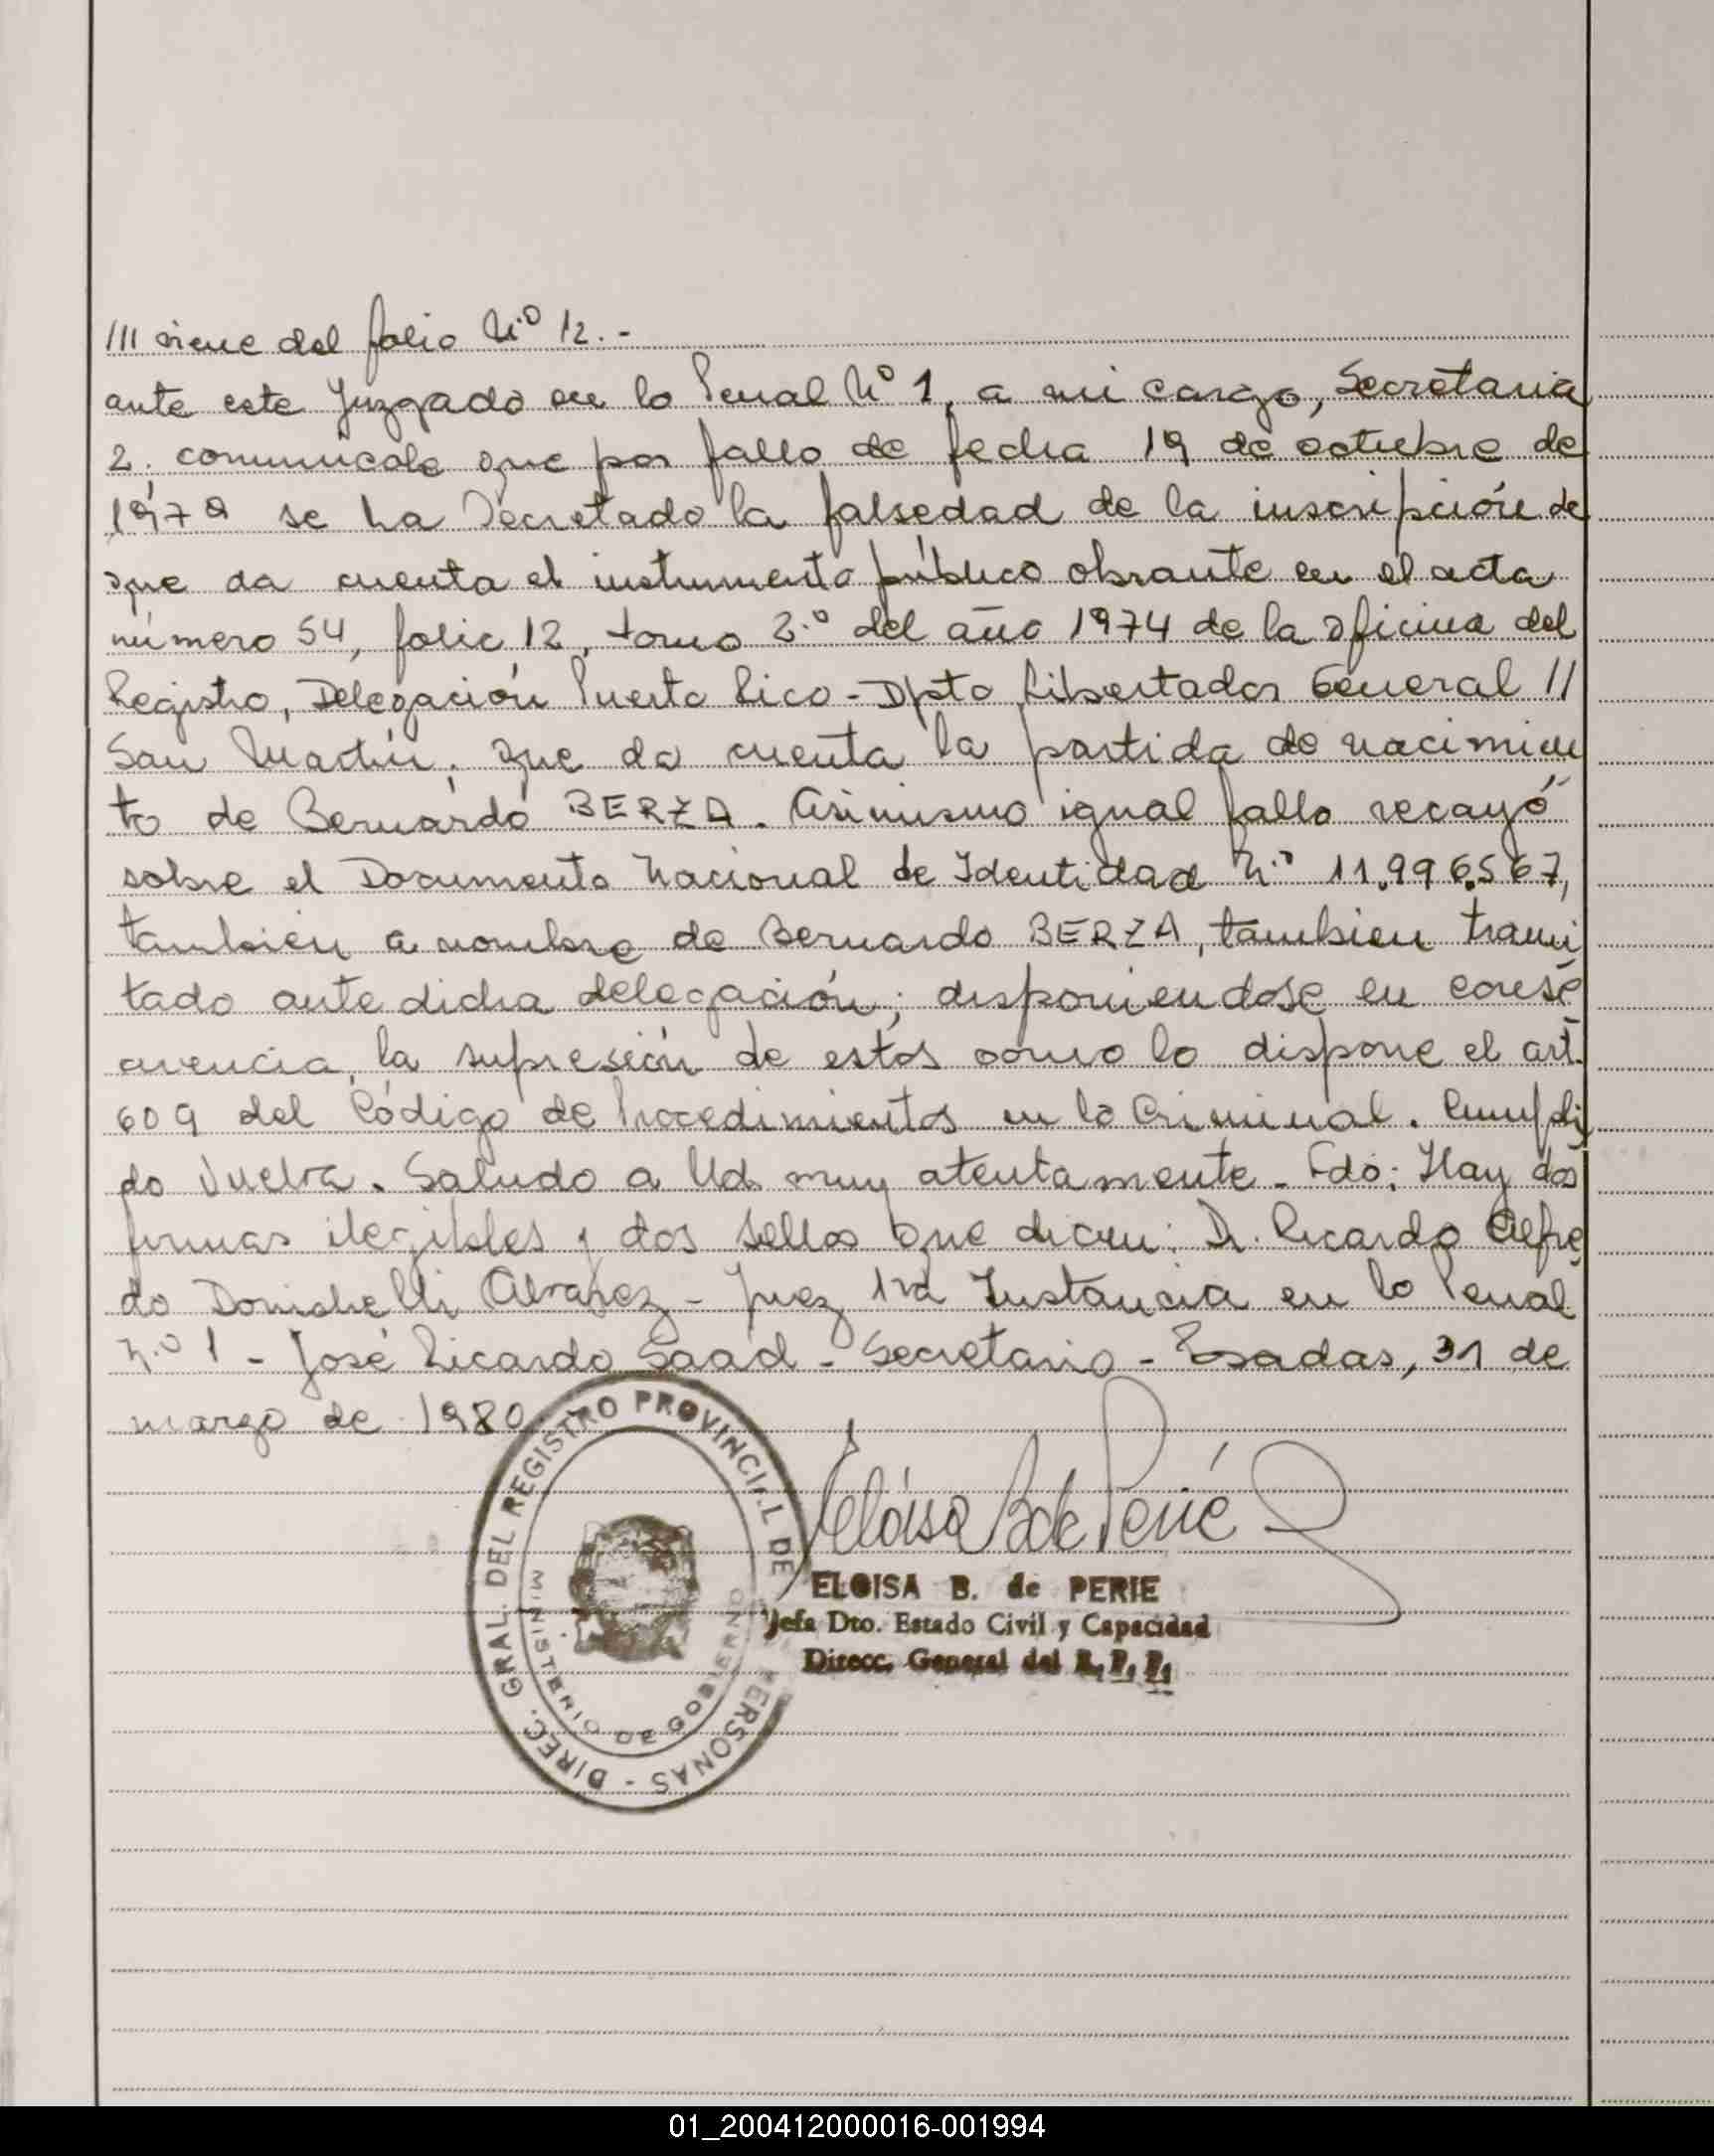 /// viene del folio N.º 12.-
ante este Juzgado en lo Penal Nº 1, a mi cargo, Secretaria
2. comunicole que por fallo de fecha 19 de octubre de
1979 se ha Decretado la falsedad de la inscripción de
que da cuenta el instrumento público obrante en el acta
número 54, folio 12, tomo 2.º del año 1974 de la oficina del
Registro, Delegación Puerto Rico - Dpto Libertador General //
San Martín, que da cuenta la partida de nacimien
to de Bernardo BERZA. Asimismo igual fallo recayó
sobre el Documento Nacional de Identidad N.º 11.996.567,
tambien a nombre de Bernardo BERZA, tambien trami
tado ante dicha delegación; disponiendose en conse
cuencia, la supresión de estos como lo dispone el art.
609 del Código de Procedimientos en lo Criminal. Cumpli
do Vuelva. Saludo a Ud. muy atentamente. Fdo: Hay dos
firmas ilegibles y dos sellos que dicen: Dr. Ricardo Alfre
do Domichelli Alvarez - Juez 1ra Instancia en lo Penal
N.º 1 - José Ricardo Saad - Secretario - Posadas, 31 de
marzo de 1980.
DIREC. GRAL. DEL REGISTRO PROVINCIAL DE PERSONAS -
MINISTERIO DE GOBIERNO
Eloisa B de Perié
ELOISA B. de PERIE
Jefa Dto. Estado Civil y Capacidad
Direcc. General del R. P. P.
01_200412000016-001994